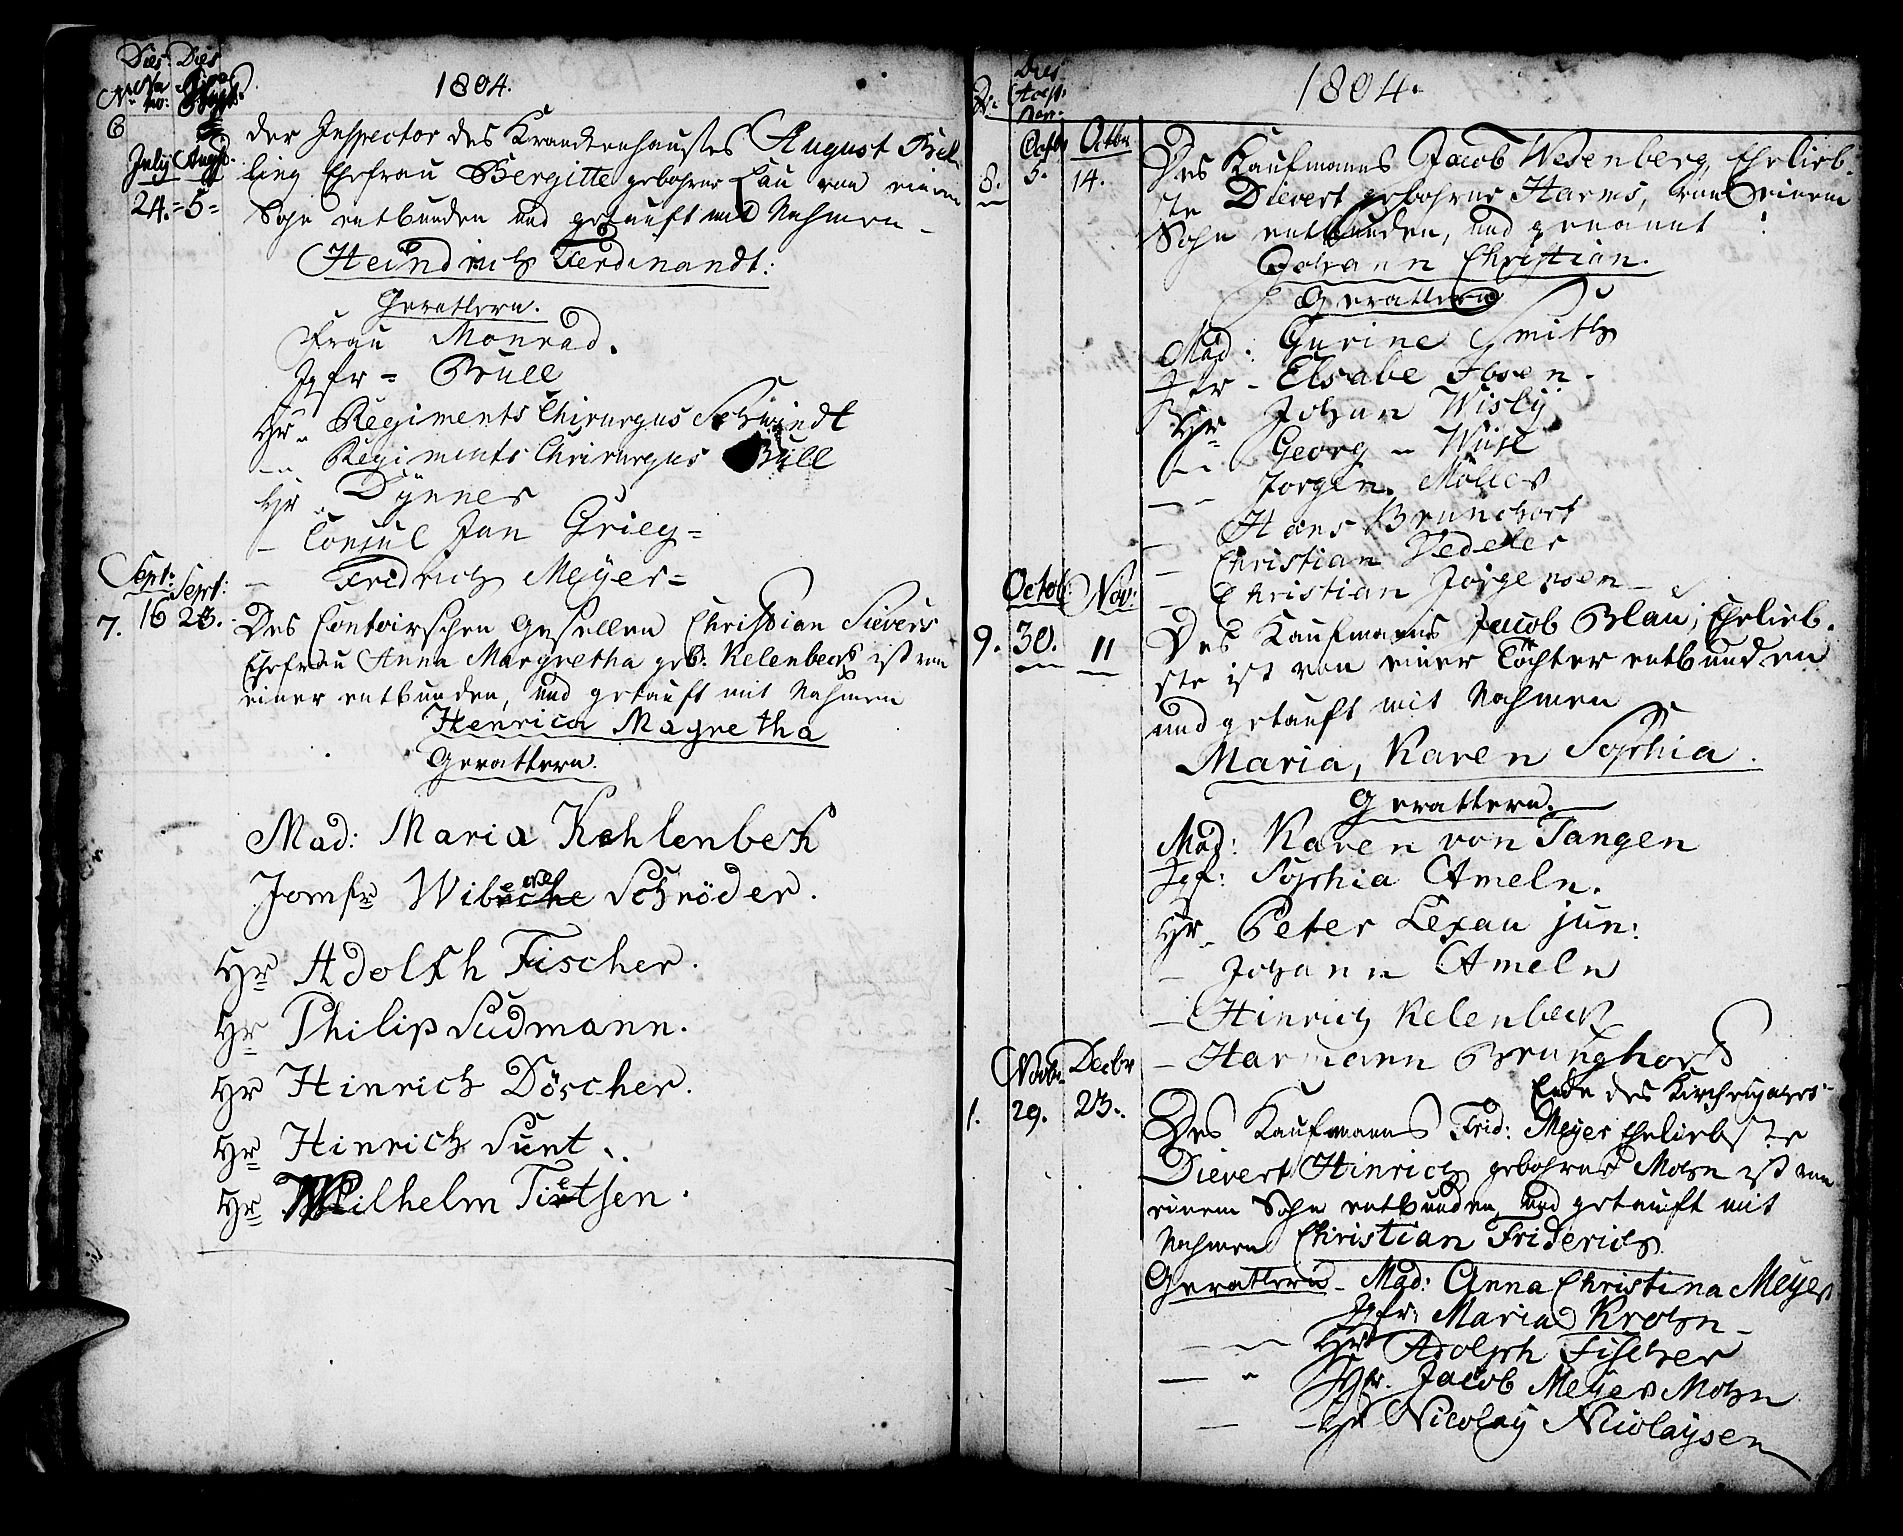 1804.
Nr
6
July Augst.
24. 5
der Inspector des Krancktenhauses August Bül-
ling Ehefrau Bergitte gebohrne Lau von einem
Sohn entbunden und getauft mit Nahmen
Heindrich Ferdinandt:
Gevattern.
Frau Monrad.
Jgfr = Büll
Hr. Regiments Chirurgus Schmindt
Regiments Chirurgus Büll
Hr. Dynner
Consul Jan Grieg =
Fredrich Meyer =
Sept: Sept:
7. 16 23.
Des Contoirschen Gesellen Christian Sievers
Ehefrau Anna Margretha geb: Kelenbeck ist von
einer entbunden, und getauft mit Nahmen
Henrica Magretha
Gevattern.
Mad: Maria Kohlenbek
Jomfr Wibeke Schröder.
Hr Adolfh Fischer.
Hr Philip Sudmann.
Hr Hinrich Döscher.
Hr Hinrich Sunt..
Hr Wilhelm Tietsen.
1804.
Octb. Octbr
8. 5. 14.
Des Kaufmanns Jacob Wesenberg, Ehelieb-
ste Dievert gebohrne Harms, von einem
Sohn entbunden, und genannt :
Johann Christian.
Gevattern
Mad: Gurine Smith
Jfr - Elsabe Ibsen.
Hr Johan Wisby
Georg Wüst
Jorgen Möller
Hans Brunchorst
Christian Vedeler
Christian Jörgensen
Octob: Nov:
9. 30. 11
Des Kaufmanns Jacob Blau, Ehelieb-
ste ist von einer Tochter entbunden
und getauft mit Nahmen
Maria, Karen Sophia.
Gevattern.
Mad: Karen von Tangen
Jgf: Sophia Ameln.
Hr. Peter Lexau jun:
Johann Ameln
Hinrich Kelenbeck
Harmann Brunghorst
Ende des Kirchenjahres
Novbr Decbr
1. 29. 23.
Des Kaufmanns Frid: Meyer Eheliebste
Dievert Hinrich gebohrne Mohn ist von
einem Sohn entbunden, und getauft mit
Nahmen Christian Friderich
Gevattern - Mad: Anna Christina Meyer
Jgfr: Maria Krohn
Hr Adolph Fischer
Hr. Jacob Meyer Mohn
Hr Nicolay Nicolaysen